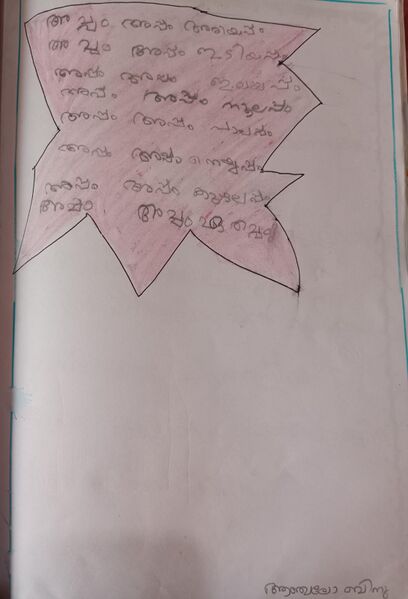 അപ്പം അപ്പം അരിയപ്പം
അപ്പം അപ്പം ഇടിയപ്പം
അപ്പം അപ്പം ഇലയപ്പം
അപ്പം അപ്പം നൂലപ്പം
അപ്പം അപ്പം പാലപ്പം
അപ്പം അപ്പം നെയ്യപ്പം
അപ്പം അപ്പം കുഴലപ്പം
അപ്പം അപ്പം ഏത്തപ്പം
ബിനു